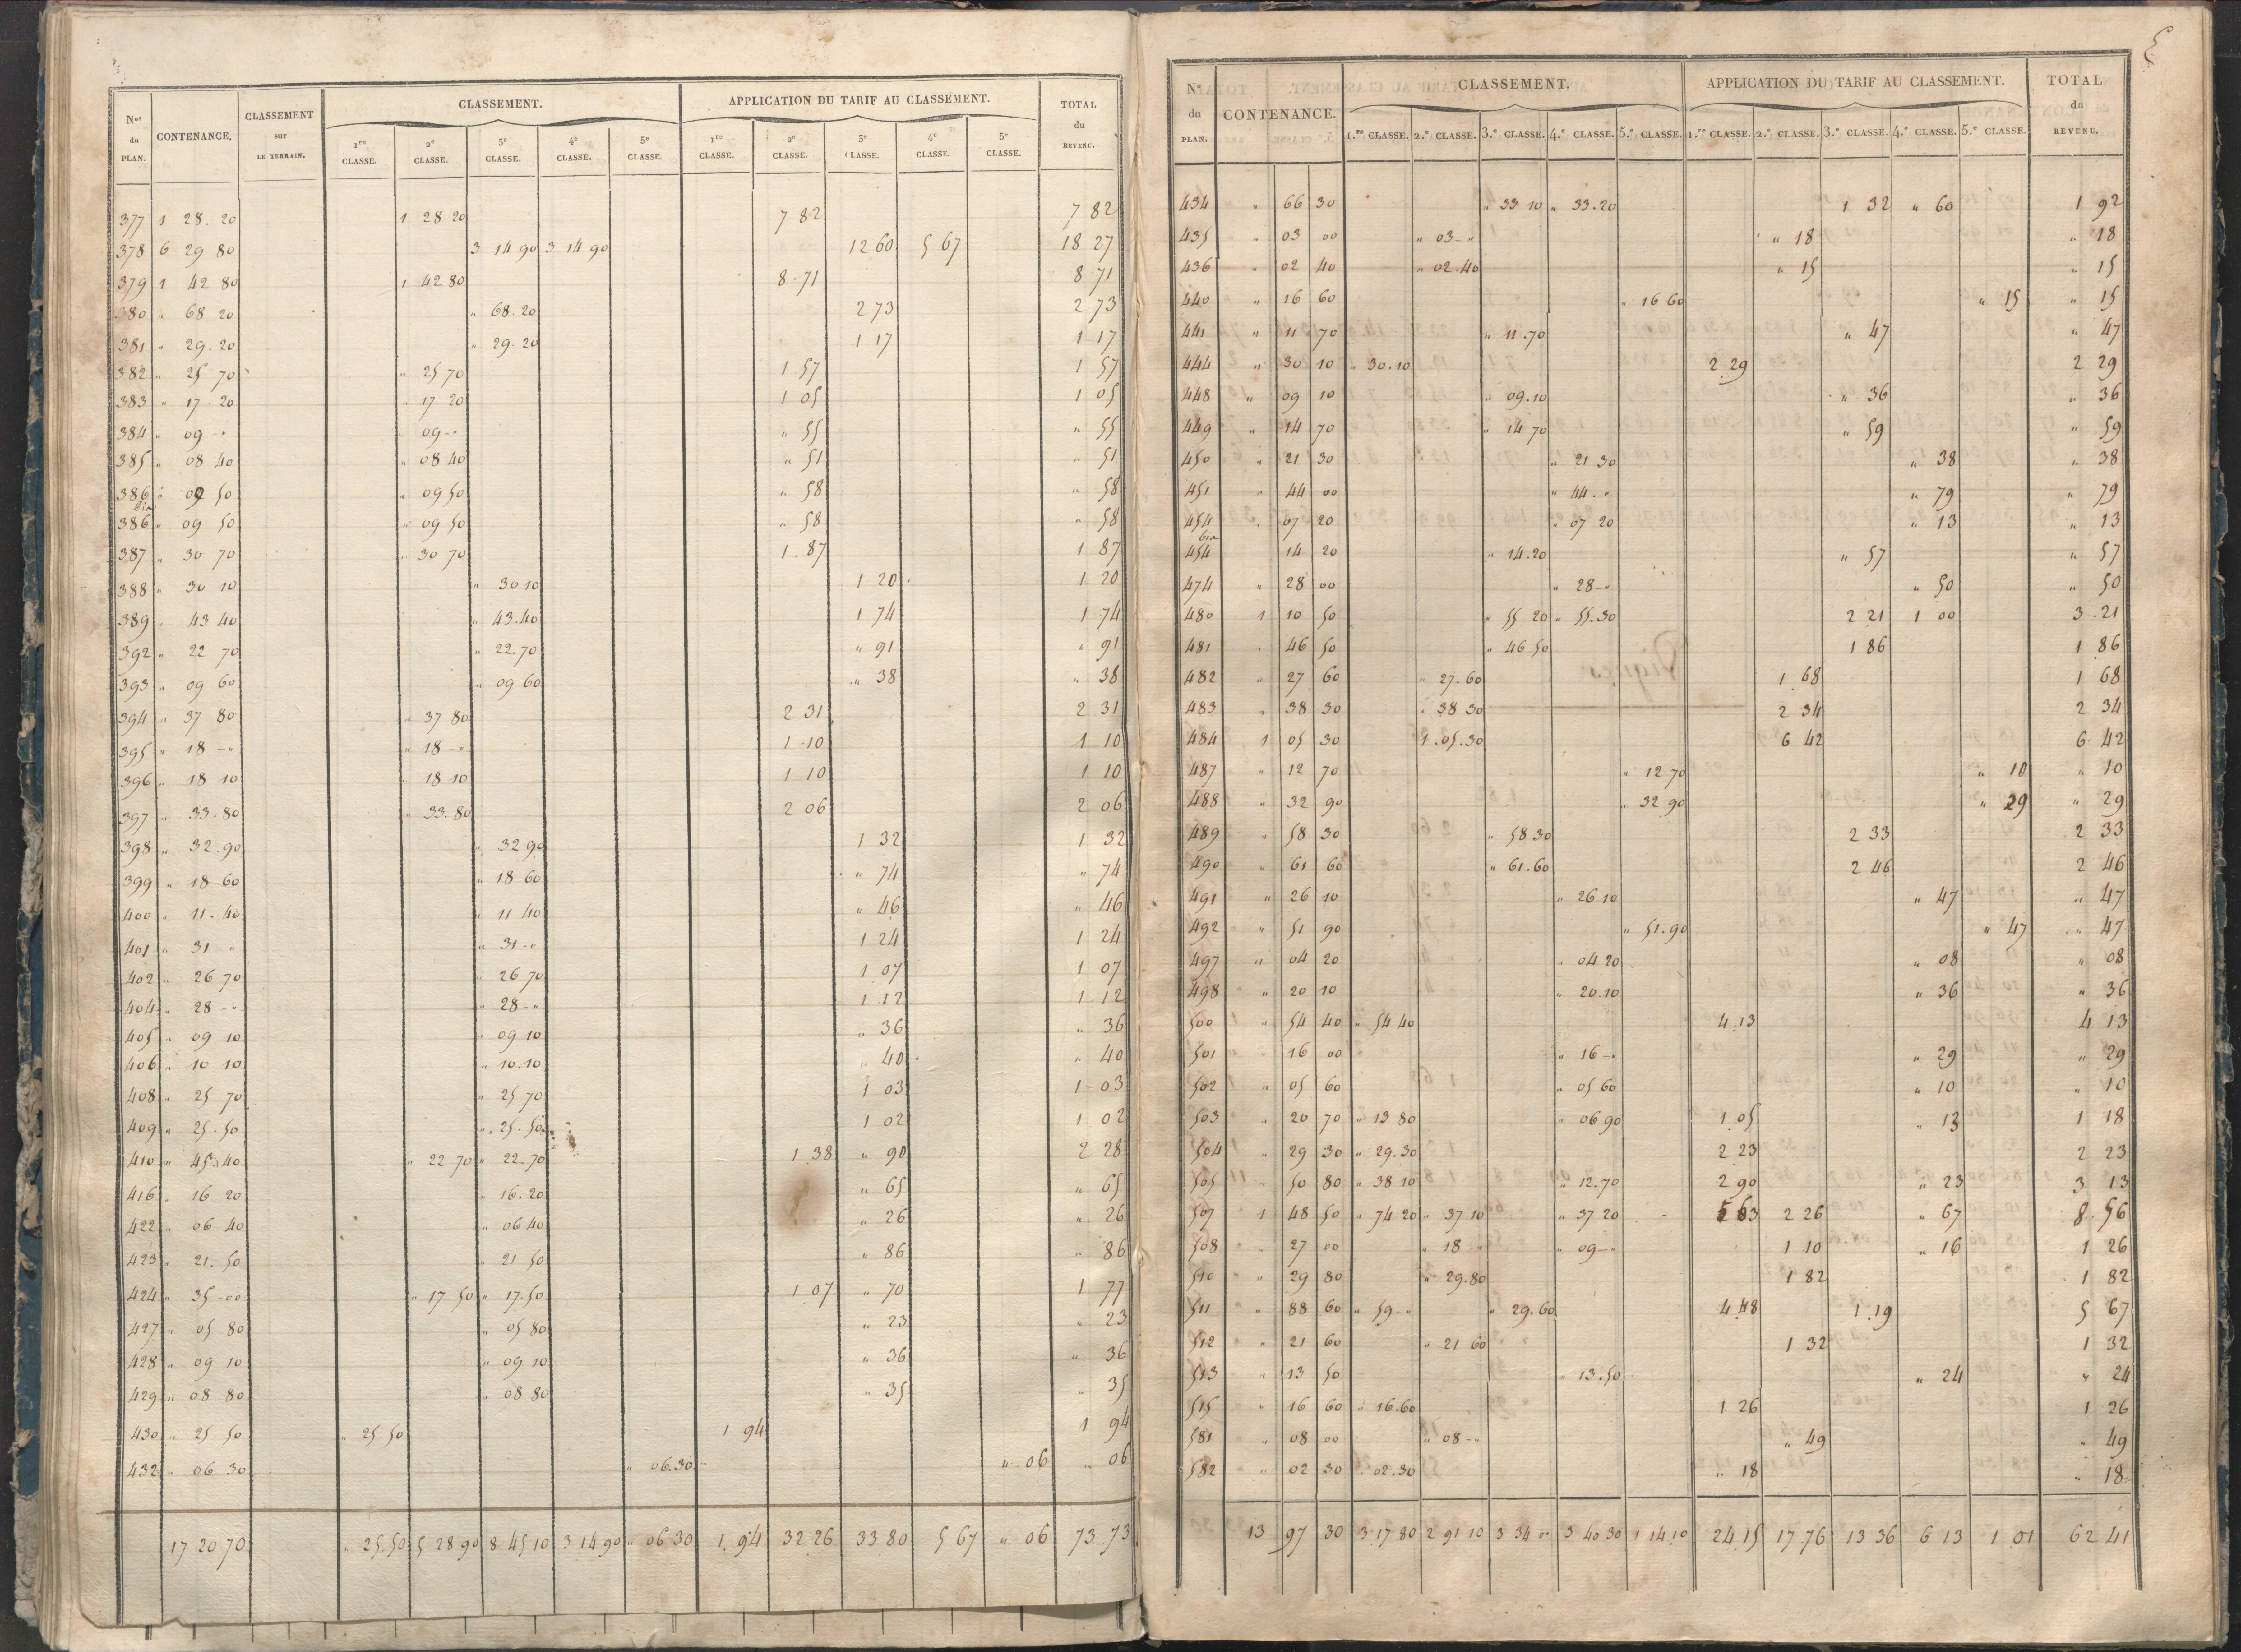 Nos du PLAN. CONTENANCE. CLASSEMENT sur LE TERRAIN. CLASSEMENT. APPLICATION DU TARIF AU CLASSEMENT. TOTAL du REVENU.
1re CLASSE. 2e CLASSE. 3e CLASSE. 4e CLASSE. 5e CLASSE. 1re CLASSE. 2e CLASSE. 3e CLASSE. 4e CLASSE. 5e CLASSE.
377 1 28. 20 1 28 20 7 82 7 82
378 6 29 80 3 14 90 3 14 90 12 60 5 67 18 27
379 1 42 80 1 42 80 8.71 8 71
380 " 68 20 " 68.20 2 73 2 73
381 " 29.20 " 29.20 1 17 1 17
382 " 25 70 " 25 70 1.57 1 57
383 " 17 20 " 17 20 1 05 1 05
384 " 09 -" " 09 -" " 55 " 55
385 " 08 40 " 08 40 " 51 " 51
386 " 09 50 " 09 50 " 58 " 58
386 bis " 09 50 " 09 50 " 58 " 58
387 " 30 70 " 30 70 1.87 1 87
388 " 30 10 " 30 10 1 20 1 20
389 " 43 40 " 43.40 1 74 1 74
392 " 22 70 " 22.70 " 91 " 91
393 " 09 60 " 09 60 " 38 " 38
394 " 37 80 " 37 80 2 31 2 31
395 " 18 -" " 18 -" 1 10 1 10
396 " 18 10 " 18 10 1 10 1 10
397 " 33.80 " 33.80 2 06 2 06
398 " 32.90 " 32 90 1 32 1 32
399 " 18 60 " 18 60 " 74 " 74
400 " 11.40 " 11 40 " 46 " 46
401 " 31 " " 31 -" 1 24 1 24
402 " 26 70 " 26 70 1 07 1 07
404 " 28 -" " 28 -" 1 12 1 12
405 " 09 10 " 09 10 " 36 " 36
406 " 10 10 " 10.10 " 40 " 40
408 " 25 70 " 25 70 1 03 1 03
409 " 25.50 " 25.50 1 02 1 02
410 " 45 40 " 22 70 " 22.70 1 38 " 90 2 28
416 " 16 20 " 16.20 " 65 " 65
422 " 06 40 " 06 40 " 26 " 26
423 " 21.50 " 21 50 " 86 " 86
424 " 35 00 " 17 50 " 17.50 1 07 " 70 1 77
427 " 05 80 " 05 80 " 23 " 23
428 " 09 10 " 09 10 " 36 " 36
429 " 08 80 " 08 80 " 35 " 35
430 " 25 50 " 25 50 1 94 1 94
432 " 06 30 " 06.30 " 06 " 06
17 20 70 " 25.50 5 28 90 8 45 10 3 14 90 " 06 30 1.94 32 26 33 80 5 67 " 06 73 73
No du PLAN. CONTENANCE. CLASSEMENT. APPLICATION DU TARIF AU CLASSEMENT. TOTAL du REVENU.
1.re CLASSE. 2.e CLASSE. 3.e CLASSE. 4.e CLASSE. 5.e CLASSE. 1.re CLASSE. 2.e CLASSE. 3.e CLASSE. 4.e CLASSE. 5.e CLASSE.
434 " 66 30 " 33 10 " 33.20 1 32 " 60 1 92
435 " 03 00 " 03 -" " 18 " 18
436 " 02 40 " 02.40 " 15 " 15
440 " 16 60 " 16 60 " 15 " 15
441 " 11 70 " 11.70 " 47 " 47
444 " 30 10 " 30.10 2.29 2 29
448 " 09 10 " 09.10 " 36 " 36
449 " 14 70 " 14 70 " 59 " 59
450 " 21 30 " 21 30 " 38 " 38
451 " 44 00 " 44 -" " 79 " 79
454 " 07 20 " 07 20 " 13 " 13
454 bis 14 20 " 14.20 " 57 " 57
474 " 28 00 " 28 -" " 50 " 50
480 1 10 50 " 55 20 " 55.30 2 21 1 00 3.21
481 " 46 50 " 46 50 1 86 1 86
482 " 27 60 " 27.60 1 68 1 68
483 " 38 30 " 38 30 2 34 2 34
484 1 05 30 1.05.30 6 42 6 42
487 " 12 70 " 12 70 " 10 " 10
488 " 32 90 " 32 90 " 29 " 29
489 " 58 30 " 58 30 2 33 2 33
490 " 61 60 " 61.60 2 46 2 46
491 " 26 10 " 26 10 " 47 " 47
492 " 51 90 " 51.90 " 47 " 47
497 " 04 20 " 04 20 " 08 " 08
498 " 20 10 " 20.10 " 36 " 36
500 " 54 40 " 54 40 4.13 4 13
501 " 16 00 " 16 -" " 29 " 29
502 " 05 60 " 05 60 " 10 " 10
503 " 20 70 " 13 80 " 06 90 1 05 " 13 1 18
504 " 29 30 " 29.30 2 23 2 23
505 " 50 80 " 38 10 " 12.70 2 90 " 23 3 13
507 1 48 50 " 74 20 " 37 10 " 37 20 5 63 2 26 " 67 8.56
508 " 27 00 " 18 " " 09 -" 1 10 " 16 1 26
510 " 29 80 " 29.80 1 82 1 82
511 " 88 60 " 59 -" " 29.60 4 48 1.19 5 67
512 " 21 60 " 21 60 1 32 1 32
513 " 13 50 " 13.50 " 24 " 24
515 " 16 60 " 16.60 1 26 1 26
581 " 08 00 " 08 -" " 49 " 49
582 " 02 30 " 02.30 " 18 " 18
13 97 30 3 17 80 2 91 10 3 34 00 3 40 30 1 14 10 24 15 17 76 13 36 6 13 1 01 62 41